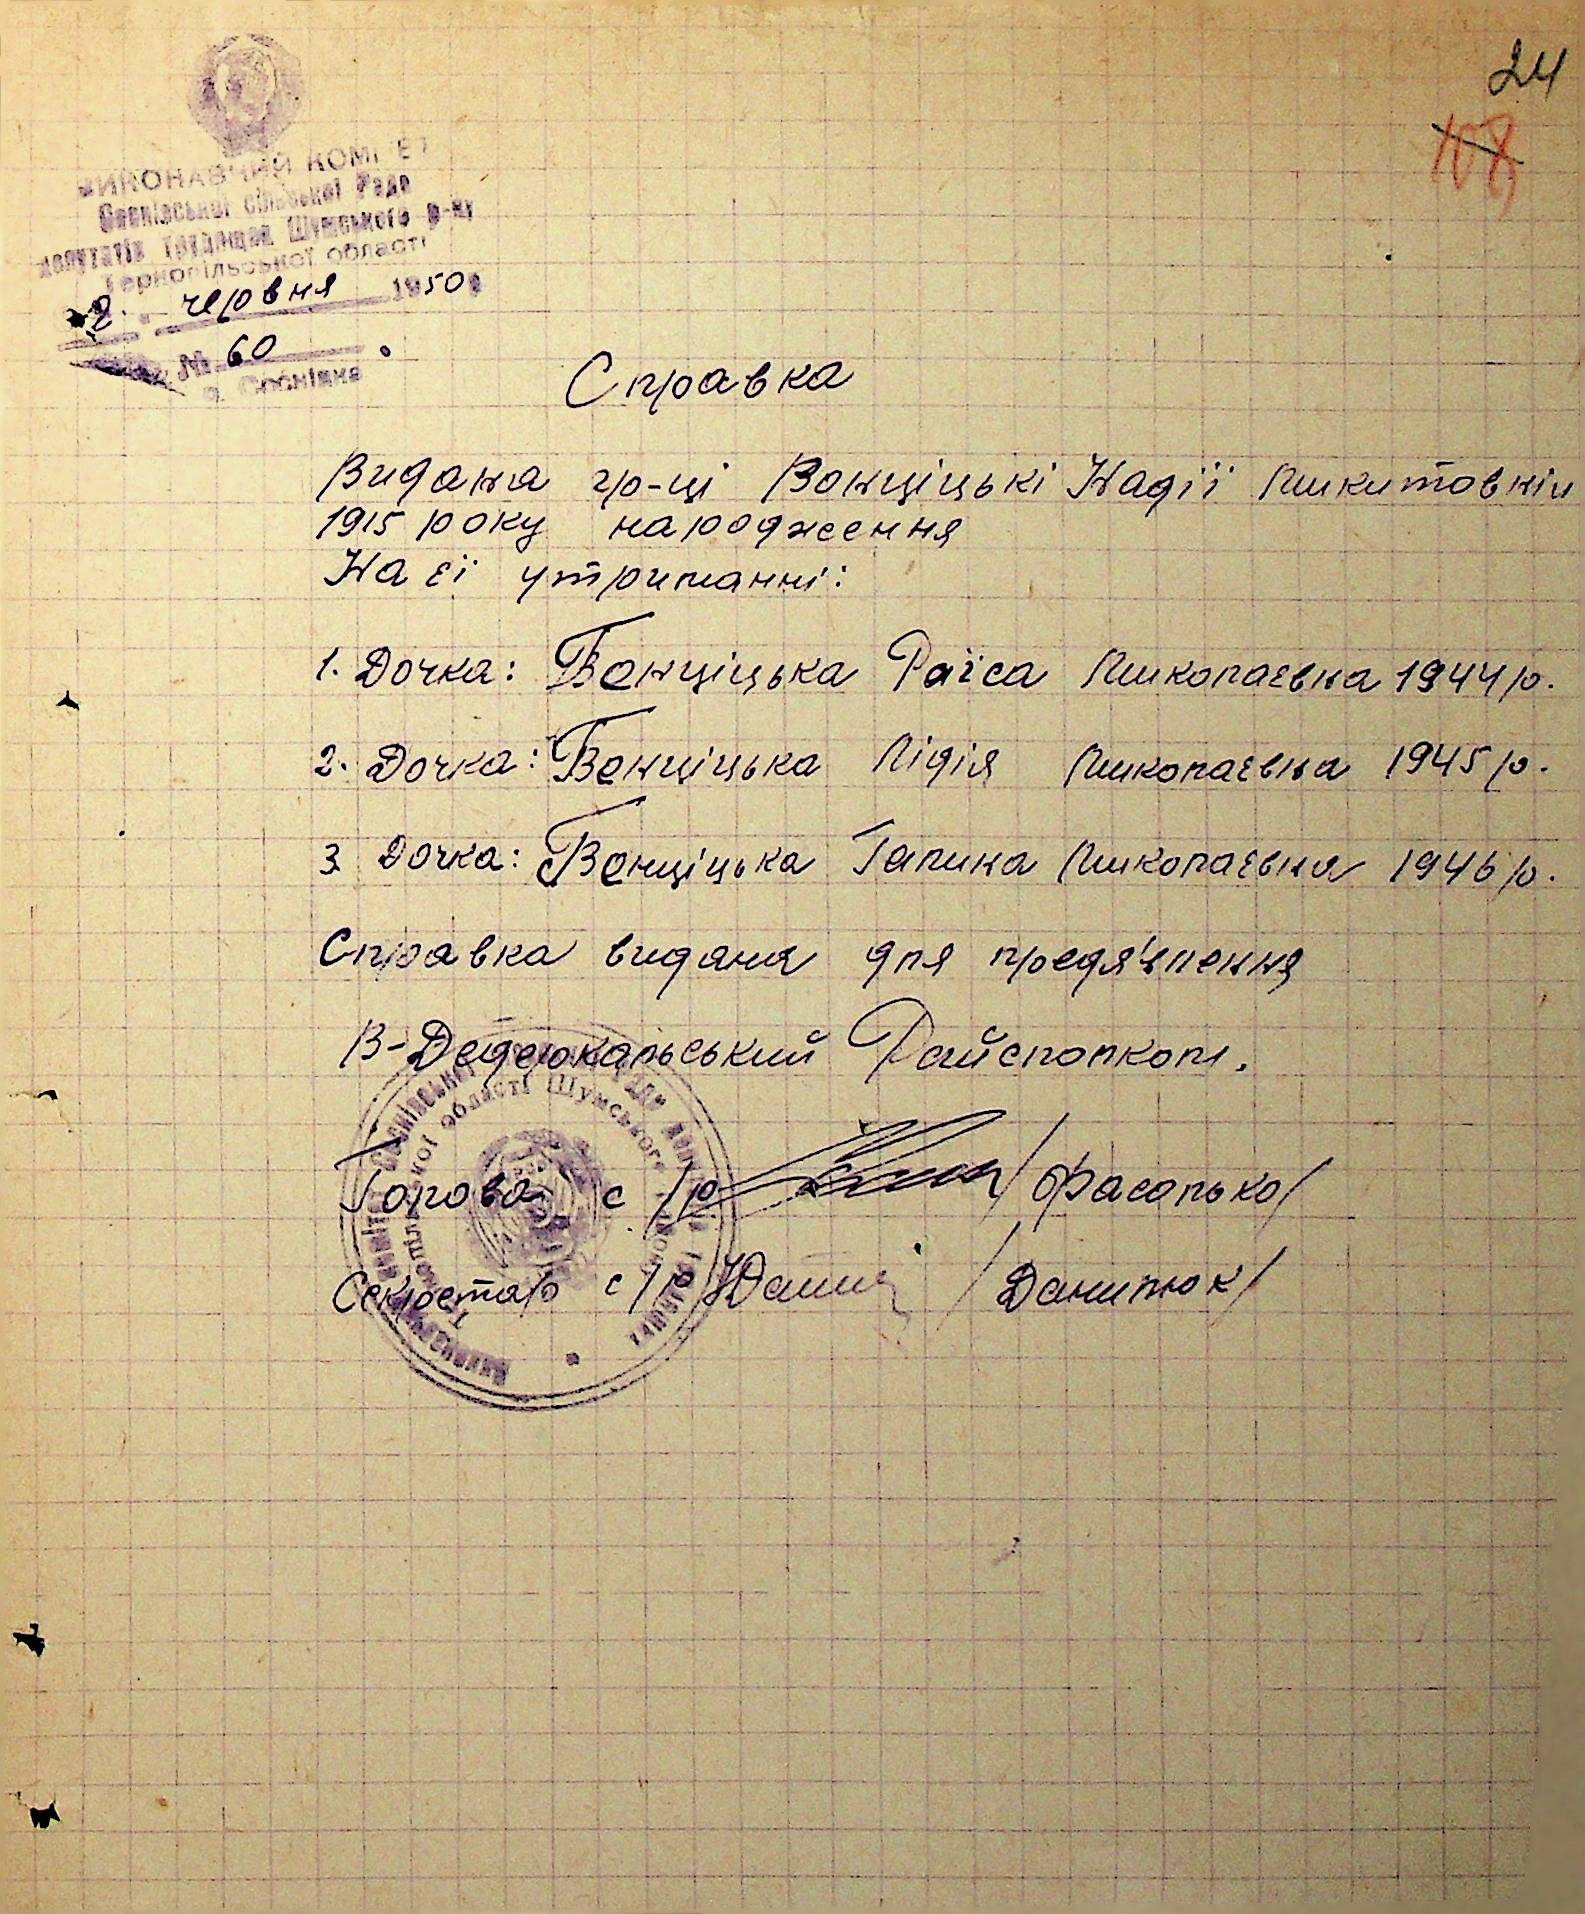 24
108
ВИКОНАВЧИЙ КОМІТЕТ
Соснівської сільської Ради
депутатів трудящих Шумського р-ну
Тернопільської області
2. червня 1950р
№ 60
с. Соснівка
Справка
Видана гр-ці Вонціцькі Надії Микитовній
1915 року народження
На єї утриманні:
1. Дочка: Вонціцька Раїса Миколаєвна 1944 р.
2. Дочка: Вонціцька Лідія Миколаєвна 1945 р.
3 Дочка: Вонціцька Галина Миколаєвна 1946 р.
Справка видана для предя'влення
В-Дедеркальський Райсполком.
Голова с/р /Фасолько/
Секретар с/р /Данилюк/